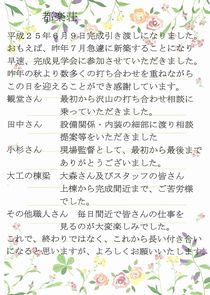 都楽荘
平成２５年６月９日完成引き渡しになりました。
おもえば、昨年７月急遽に新築することになり
早速、完成見学会に参加させていただきました。
昨年の秋より数多くの打ち合わせを重ねながら
この日を迎えることができ感謝しています。
観堂さん　最初から沢山の打ち合わせ相談に
乗っていただきました。
田中さん　設備関係・内装の細部に渡り相談
提案等をいただきました
小杉さん　現場監督として、最初から最後まで
ありがとうございました。
大工の棟梁　大森さん及びスタッフの皆さん
上棟から完成間近まで、ご苦労様
でした。
その他職人さん　毎日間近で皆さんの仕事を
見るのが大変楽しみでした。
これで、終わりではなく、これから長い付き合い
になると思いますが、よろしくお願いいたします